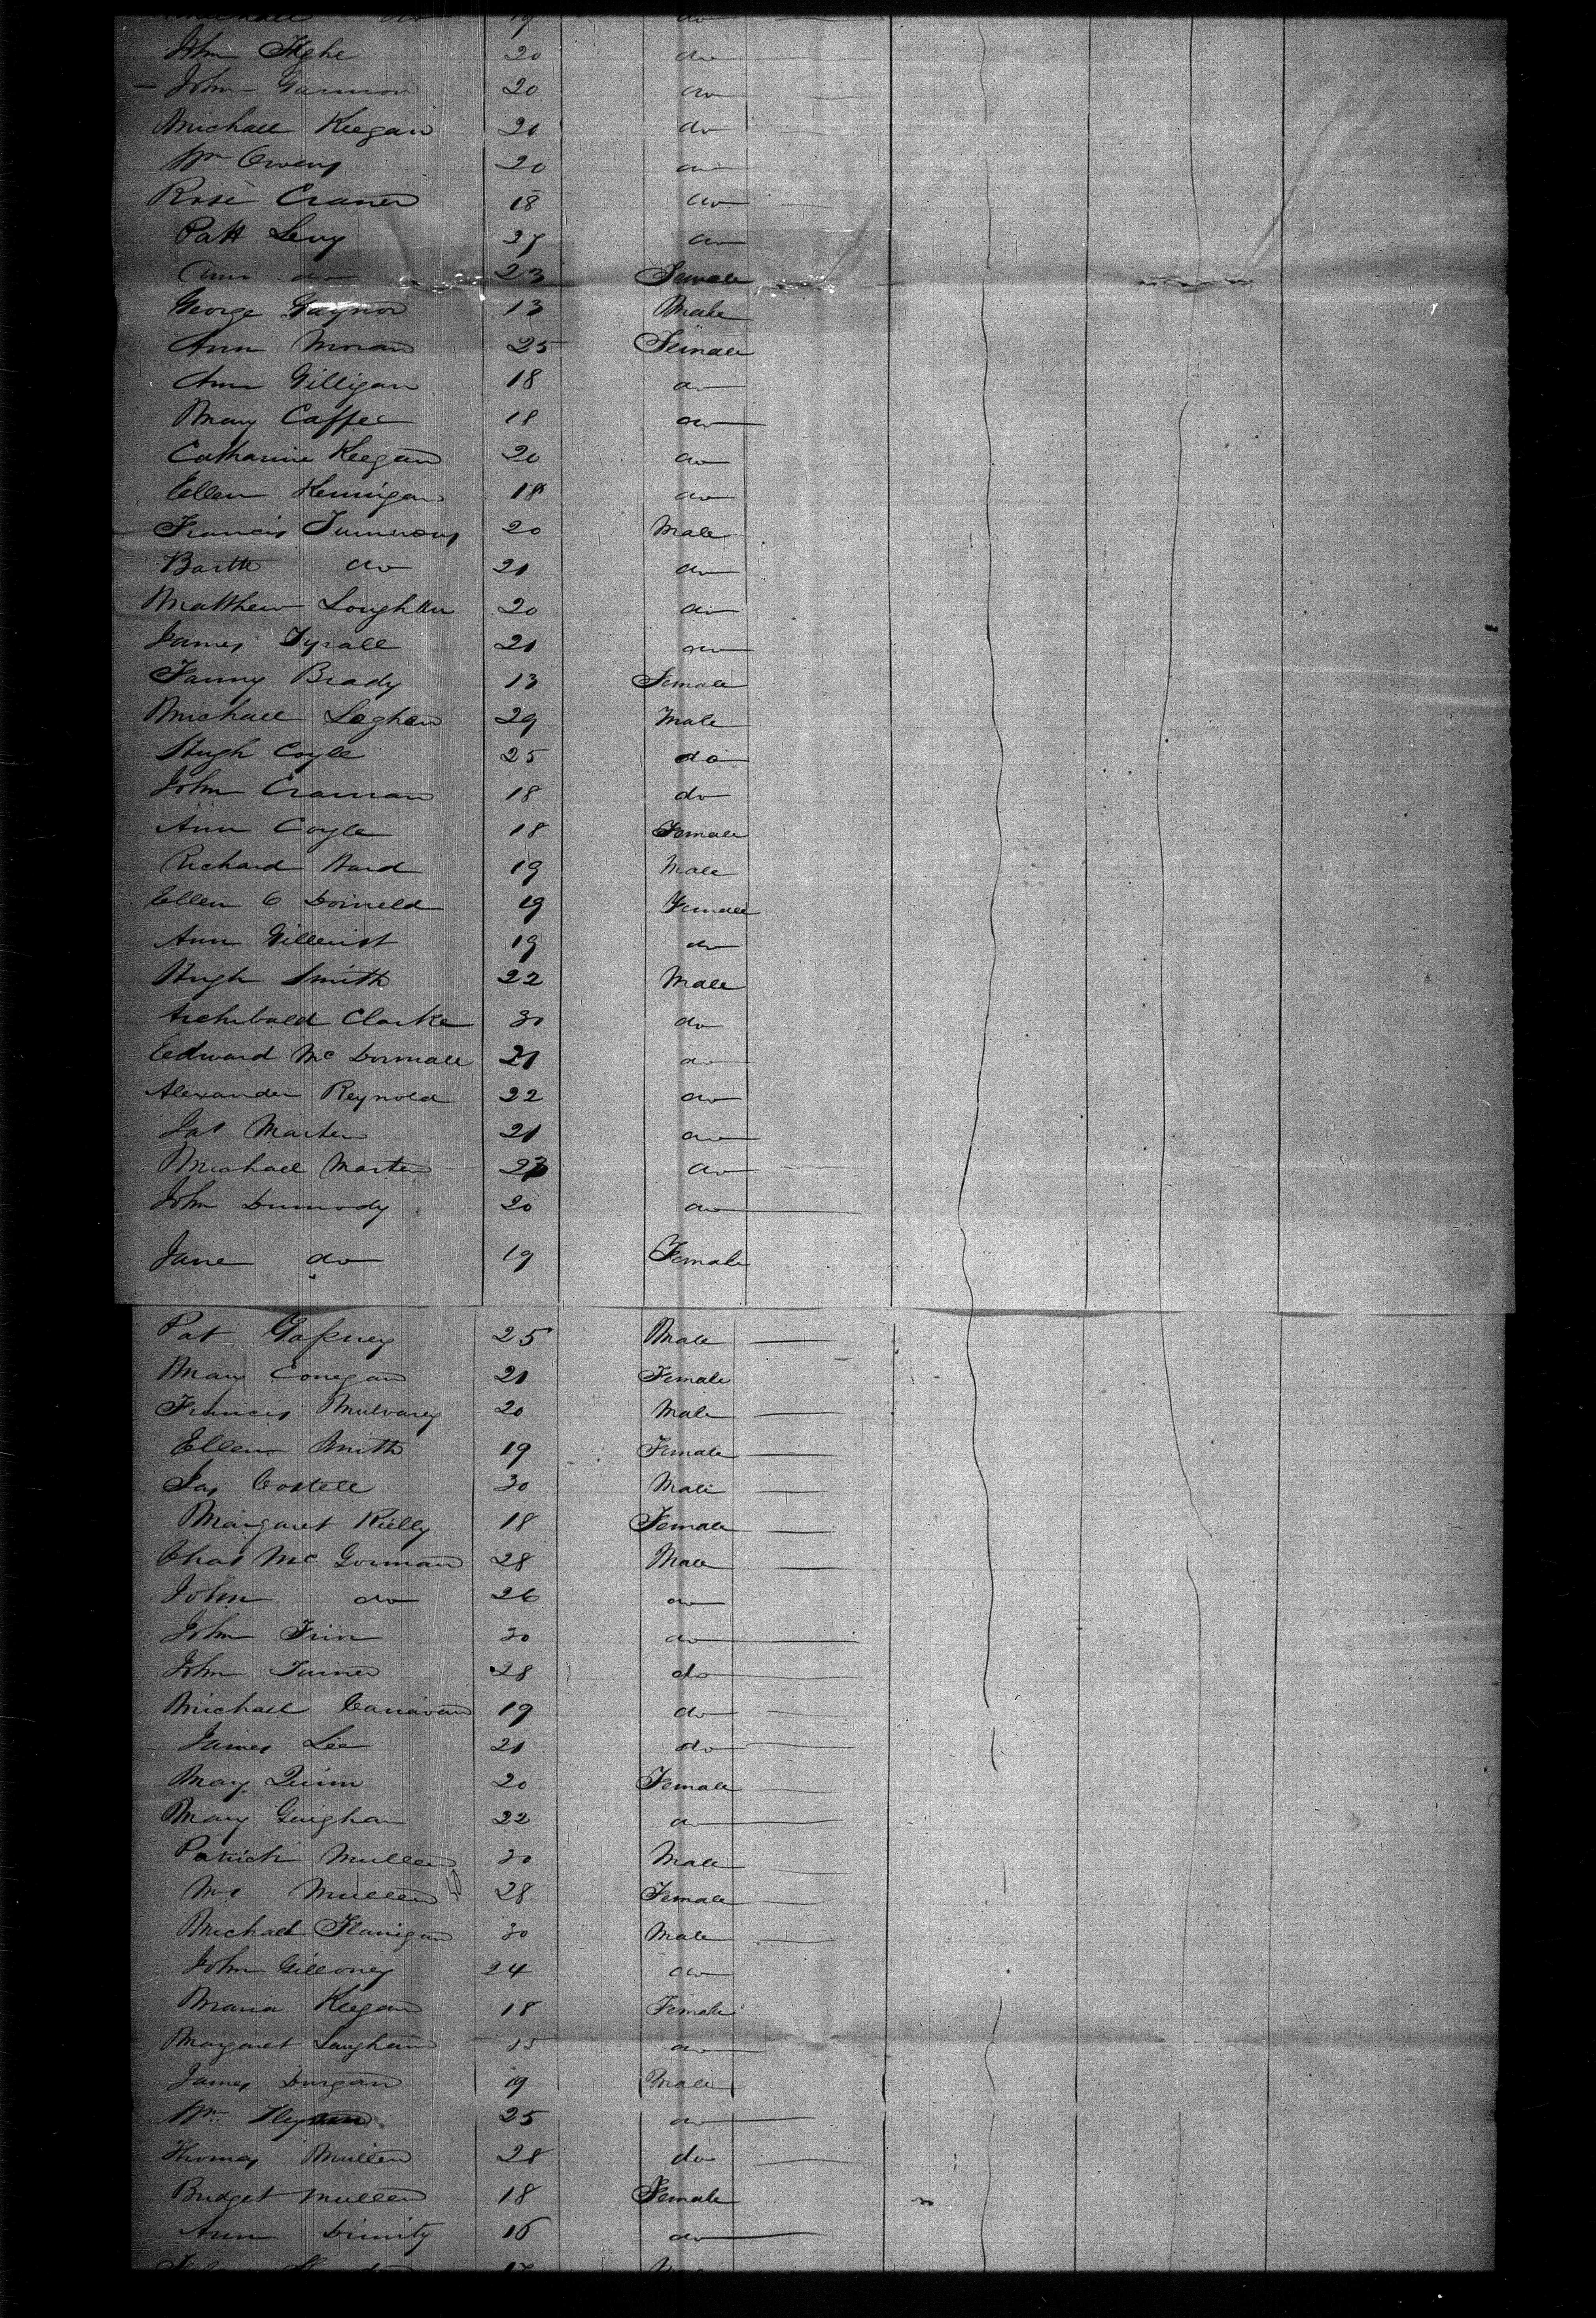 Michael do 19 do
John Tighe 20 do
John Gannon 20 do
Michael Keegan 20 do
Wm Owens 20 do
Rose Craner 18 do
Patt Levy 27 do
Ann do 23 Female
George Gaynor 13 Male
Ann Moran 25 Female
Ann Gilligan 18 do
Mary Caffee 18 do
Catharine Keegan 20 do
Ellen Hennigan 18 do
Francis Timmons 20 Male
Bartte do 21 do
Matthew 20 do
James Tyrall 21 do
Fanny Brady 13 Female
Michael Leghan 29 Male
Hugh Coyle 25 do
John Craman 18 do
Ann Coyle 18 Female
Richard Ward 19 Male
Ellen O Donneld 19 Female
Ann Gillerist 19 do
Hugh Smith 22 Male
Archibald Clarke 30 do
Edward Mc 21 do
Alexander Reynold 22 do
Jas Marten 21 do
Michael Marten do
John Dunnody 20 do
Jane do 19 Female
Pat Gafney 25 Male
Mary Conegan 21 Female
Francis Mulvany 20 Male
Ellen Smith 19 Female
Jas Costell 30 Male
Margaret Rielly 18 Female
Chas Mc Gorman 28 Male
John do 26 do
John Frin 30 do
John Turner 28 do
Michael Canavan 19 do
James Lee 21 do
Mary Quinn 20 Female
Mary Guighan 22 do
Patrick Mullen 30 Male
Mrs Mullen 28 Female
Michael Flanigan 30 Male
John Gilloney 24 do
Maria Keegan 18 Female
Margaret Langhan 15 do
James Durgan 19 Male
Wm 25 do
Thomas Mullen 28 do
Bridget Mullen 18 Female
Ann Dinnity 16 do
17